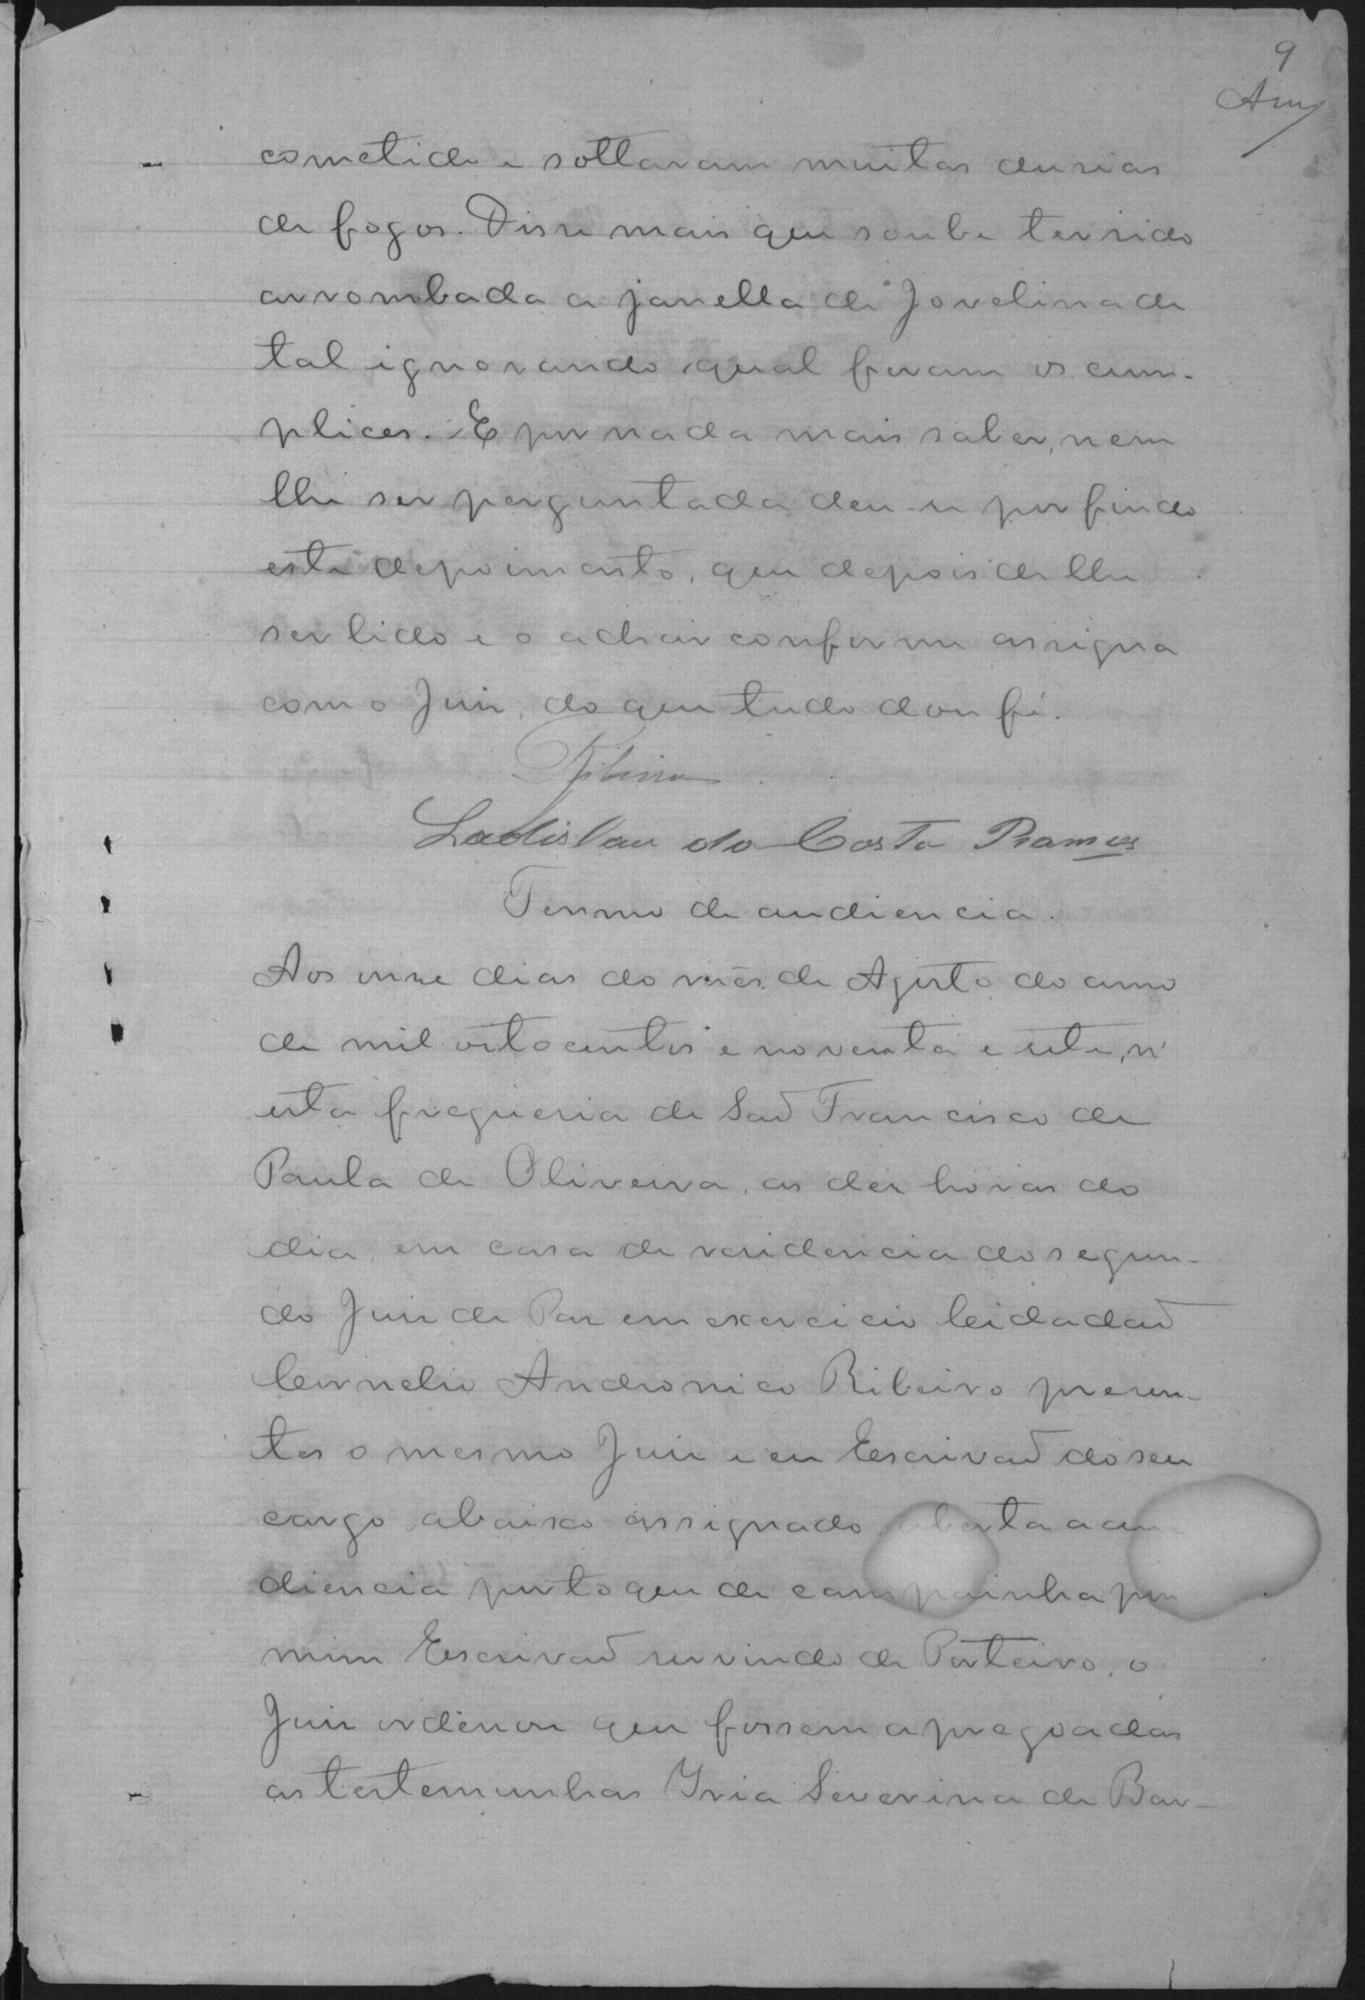 9
cometido e soltaram muitas dusias
de fogos. Disse mais que soube ter sido
arrombada a janella de Jovelina de
tal ignorando qual foram os cum-
plices. E por nada mais saber, nem
lhe ser perguntada deu-se por findo
este depoimento, que depois de lhe
ser lido e o achar conforme assigna
com o Juiz, do que tudo dou fé.
Ribeiro
Ladislau da Costa Ramos
Termo de audiencia.
Aos onze dias do mês de Agosto do anno
de mil oitocentos e noventa e sete, n'
esta freguesia de Saõ Francisco de
Paula de Oliveira, as dez horas do
dia, em casa de residencia do segun-
do Juiz de Paz em exercicio Cidadaõ
Cornelio Andronico Ribeiro presen-
tes o mesmo Juiz e eu Escrivaõ do seu
cargo abaixo assignado, aberta a au
diencia por toque de campainha por
mim Escrivaõ servindo de Porteiro, o
Juiz ordenou que fossem apregoadas
as testemunhas Iria Severina de Bar-